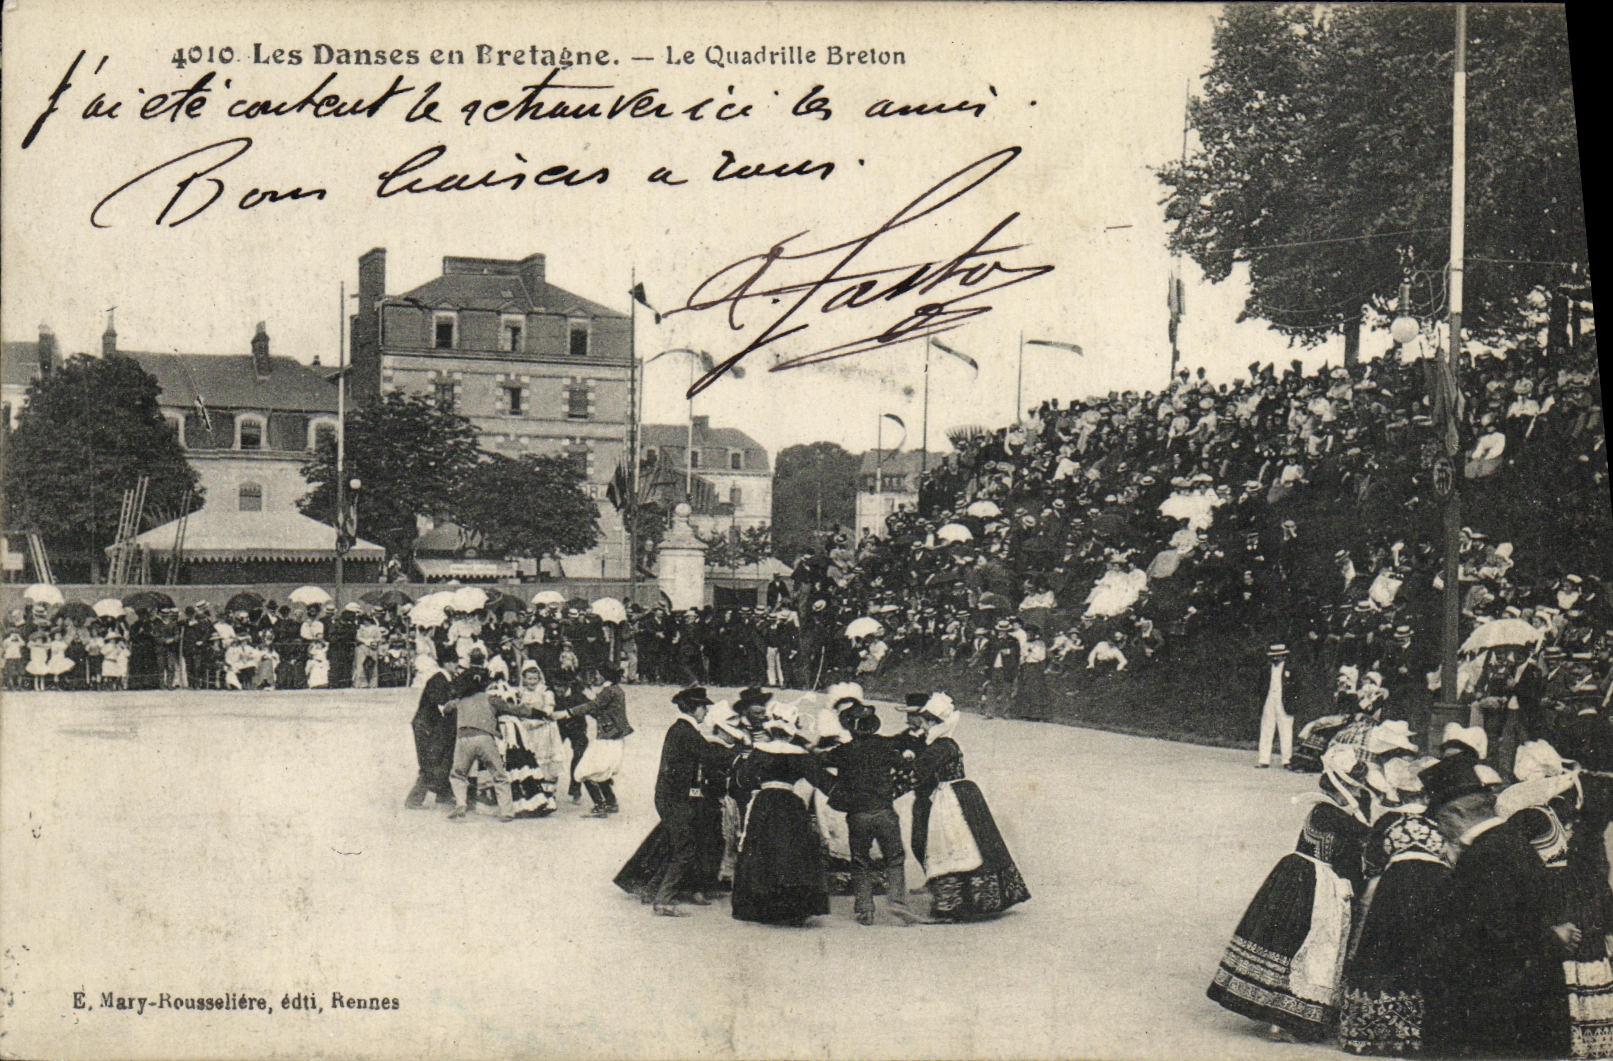 4010. Les Danses en Bretagne. — Le Quadrille Breton
J'ai eté content de retrouver ici les amis.
Bons baisers a vous.
E. Mary-Rousseliére, édti, Rennes